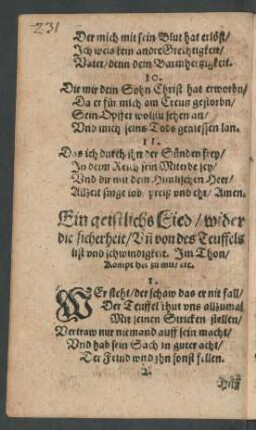 231
Der mich mit sein Blut hat erlöst/
Ich weis kein andre Grechtigkeit/
Vater/denn dein Barmhertzigkeit.
10.
Die mir dein Sohn Christ hat erworbn/
Da er für mich am Creutz gestorbn/
Sein Opffer wolstu sehen an/
Vnd mich seins Tods geniessen lan.
11.
Das ich durch ihn der Sünden frey/
In deim Reich sein Miterbe sey/
Vnd dir mit dem Himlischen Heer/
Allzeit singe lob/ preiß vnd ehr/ Amen.
Ein geistlichs Lied/ wider
die sicherheit/ Vñ von des Teuffels
list vnd schwindigkeit. Im Thon/
Kompt her zu mir/ etc.
1.
WEr steht/ der schaw das er nit fall/
Der Teuffel thut vns allzumal
Mit seinen Stricken stellen/
Vertraw nur niemand auff sein macht/
Vnd hab sein Sach in guter acht/
Der Feind wird jhn sonst fellen.
2.